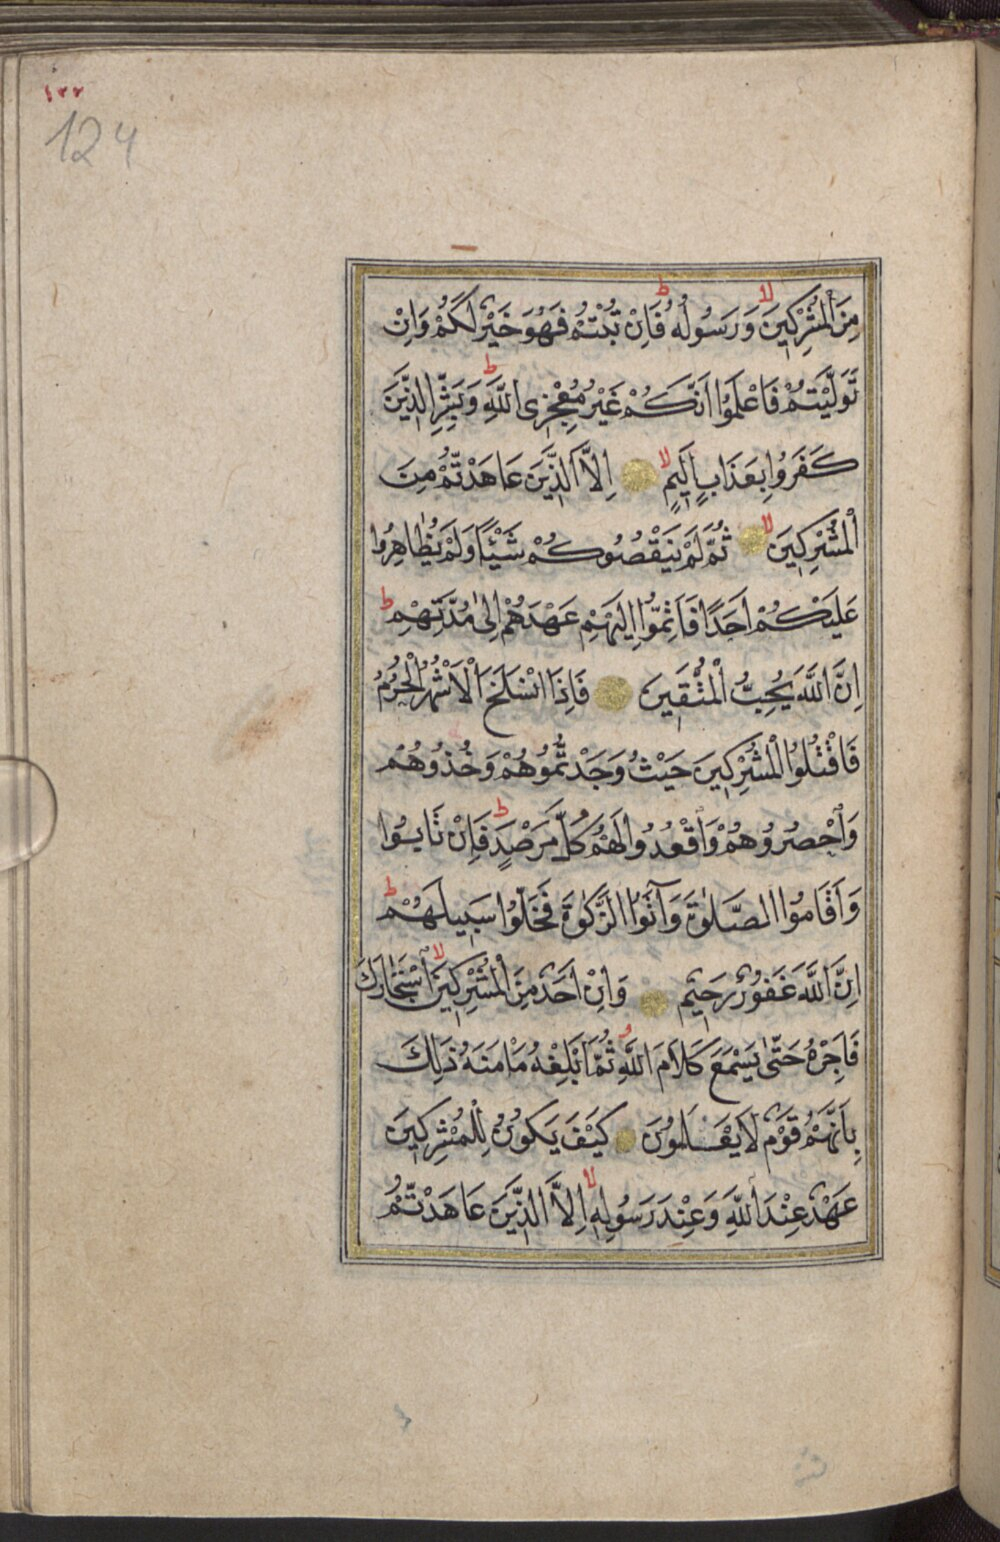 ١٢٣
124
مِنَ الْمُشْرِكِينَ لا وَرَسُولُهُ ط فَاِنْ تُبْتُمْ فَهُوَ خَيْرٌ لَكُمْ وَاِنْ
تَوَلَّيْتُمْ فَاعْلَمُوا اَنَّكُمْ غَيْرُ مُعْجِزِى اللَّهِ ط وَبَشِّرِ الَّذِينَ
كَفَرُوا بِعَذَابٍ اَلِيمٍ لا اِلَّا الَّذِينَ عَاهَدْتُمْ مِنَ
الْمُشْرِكِينَ لا ثُمَّ لَمْ يَنْقُصُوكُمْ شَيْئًا وَلَمْ يُظَاهِرُوا
عَلَيْكُمْ اَحَدًا فَاَتِمُّوا اِلَيْهِمْ عَهْدَهُمْ اِلٰى مُدَّتِهِمْ ط
اِنَّ اللَّهَ يُحِبُّ الْمُتَّقِينَ فَاِذَا انْسَلَخَ الْاَشْهُرُ الْحُرُمُ
فَاقْتُلُوا الْمُشْرِكِينَ حَيْثُ وَجَدْتُمُوهُمْ وَخُذُوهُمْ
وَاحْصُرُوهُمْ وَاقْعُدُوا لَهُمْ كُلَّ مَرْصَدٍ ط فَاِنْ تَابُوا
وَاَقَامُوا الصَّلٰوةَ وَآتَوُا الزَّكٰوةَ فَخَلُّوا سَبِيلَهُمْ ط
اِنَّ اللَّهَ غَفُورٌ رَحِيمٌ وَاِنْ اَحَدٌ مِنَ الْمُشْرِكِينَ لا اسْتَجَارَكَ
فَاَجِرْهُ حَتّٰى يَسْمَعَ كَلَامَ اللَّهِ ثُمَّ اَبْلِغْهُ مَاْمَنَهُ ذٰلِكَ
بِاَنَّهُمْ قَوْمٌ لَا يَعْلَمُونَ كَيْفَ يَكُونُ لِلْمُشْرِكِينَ
عَهْدٌ عِنْدَ اللَّهِ وَعِنْدَ رَسُولِهِ لا اِلَّا الَّذِينَ عَاهَدْتُمْ